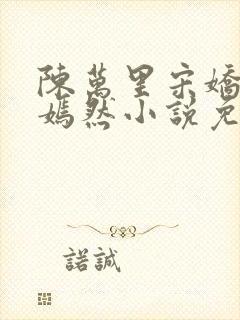 陳萬里宋嬌
嫣然小說免
諾誠